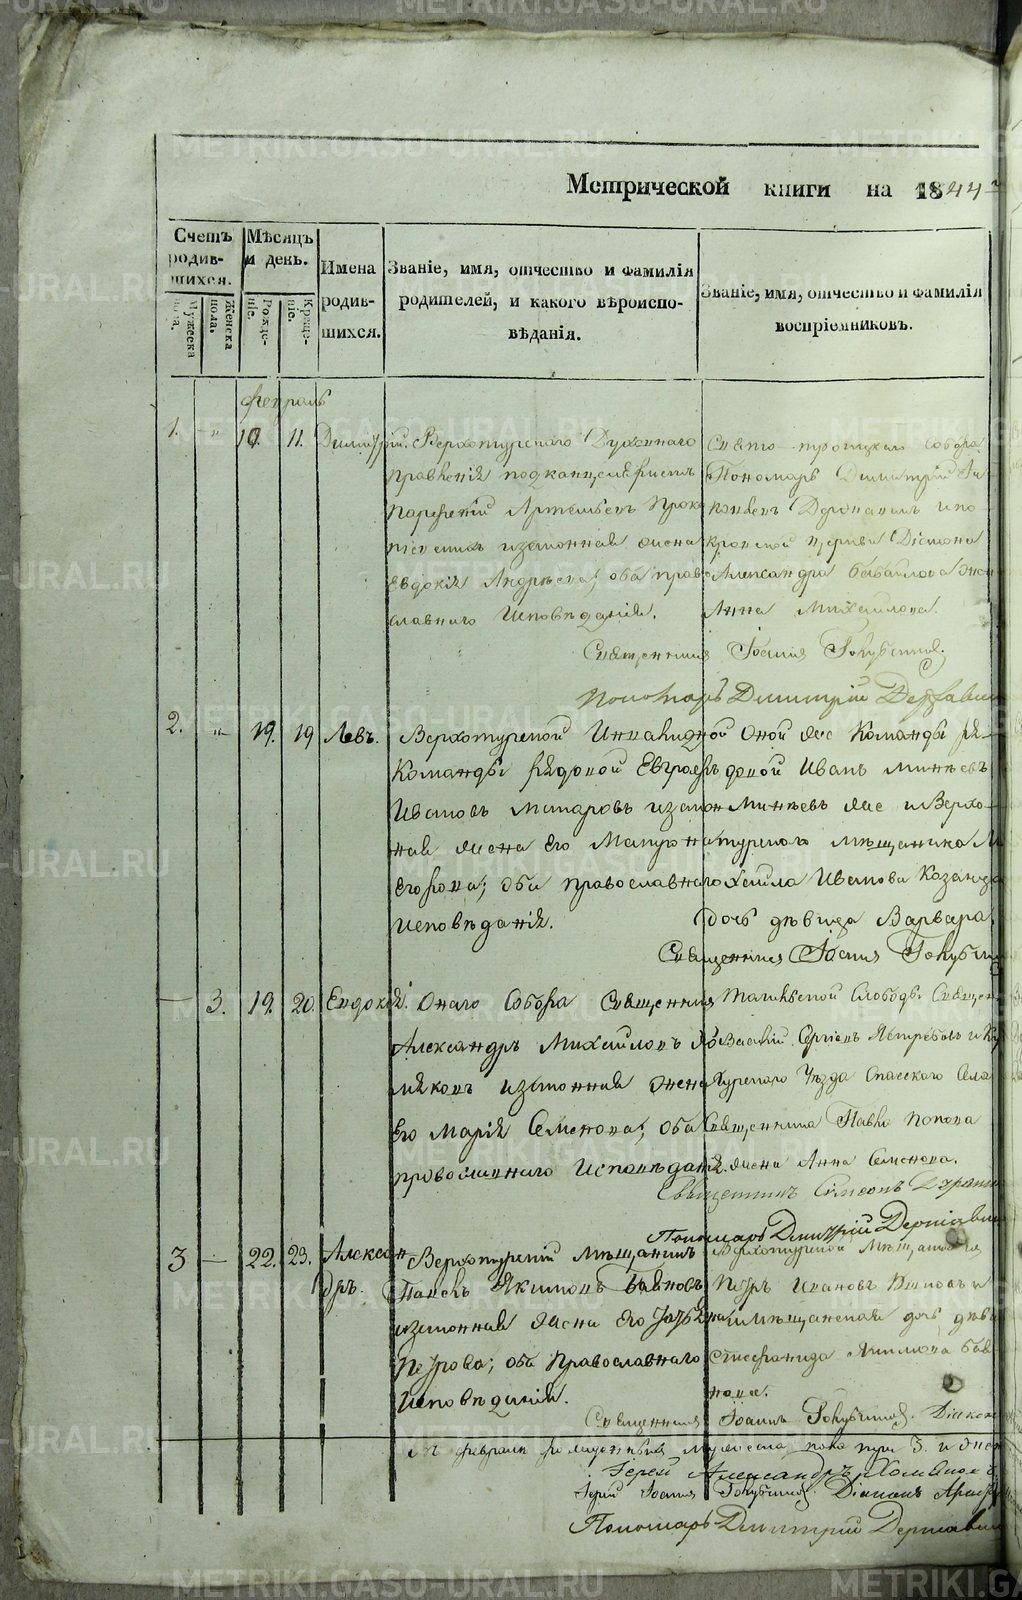 METRIKI.GASO-URAL.RU
Метрической книги на 1844
Счетъ родив-шихся.
Мужеска пола.
Женска пола.
Мѣсяцъ и день.
Рожде-ніе.
Креще-ніе.
Имена родив-шихся.
Званіе, имя, отчество и фамилія родителей, и какого вѣроиспо-вѣданія.
Званіе, имя, отчество и фамилія воспріемниковъ.
Февраль
1. " 10. 11. Димитрій.
Верхотурскаго Духовнаго
Правленія подканцеляристъ
Парфеній Артемьевъ
и законная жена
Евдокія Андреева; оба право-
славнаго исповѣданія.
Свято-Троицкаго собора
Пономарь Димитрій
Державинъ и по-
кровской церкви Діакона
Александра жена
Анна Михайлова.
Священникъ Іоаннъ Голубчиковъ.
Пономарь Димитрій Державин
2. " 19. 19 Левъ.
Верхотурской Инвалидной
Команды рядовой
Ивановъ Макаровъ и закон-
ная жена его Матрона
Егорова; оба православнаго
исповѣданія.
Оной же Команды ря-
довой Иванъ Минѣевъ
Минѣевъ же и Верхо-
турскаго мѣщанина Ми
хаила Иванова
дочь дѣвица Варвара.
Священникъ Іоаннъ Голубчи
— 3. 19. 20. Евдокія.
Онаго Собора Священникъ
Александръ Михайловъ Хо-
мяковъ и законная жена
его Марія Семенова; оба
православнаго исповѣданія.
Слободы Священ
Сергіевъ Ястребовъ и Ку
Уѣзда Спасскаго Села
Священника Павла Попова
жена Анна Семенова.
Священникъ Симеонъ
Пономарь Димитрій Державин
3 — 22. 23. Алексан-
дръ.
Верхотурскій Мѣщанинъ
Павелъ Якимовъ
законная жена его Татьяна
Петрова; оба Православнаго
исповѣданія.
Верхотурской Мѣщанинъ
Петръ Ивановъ и
мѣщанская дочь дѣви
Стефанида Якимова
нова.
Священникъ Іоаннъ Голубчиковъ. Діакон
Въ февралѣ мужеска пола три 3. и жен
Іерей Александръ Хомяковъ
Іерей Іоаннъ Голубчиковъ. Діаконъ
Пономарь Димитрій Державин